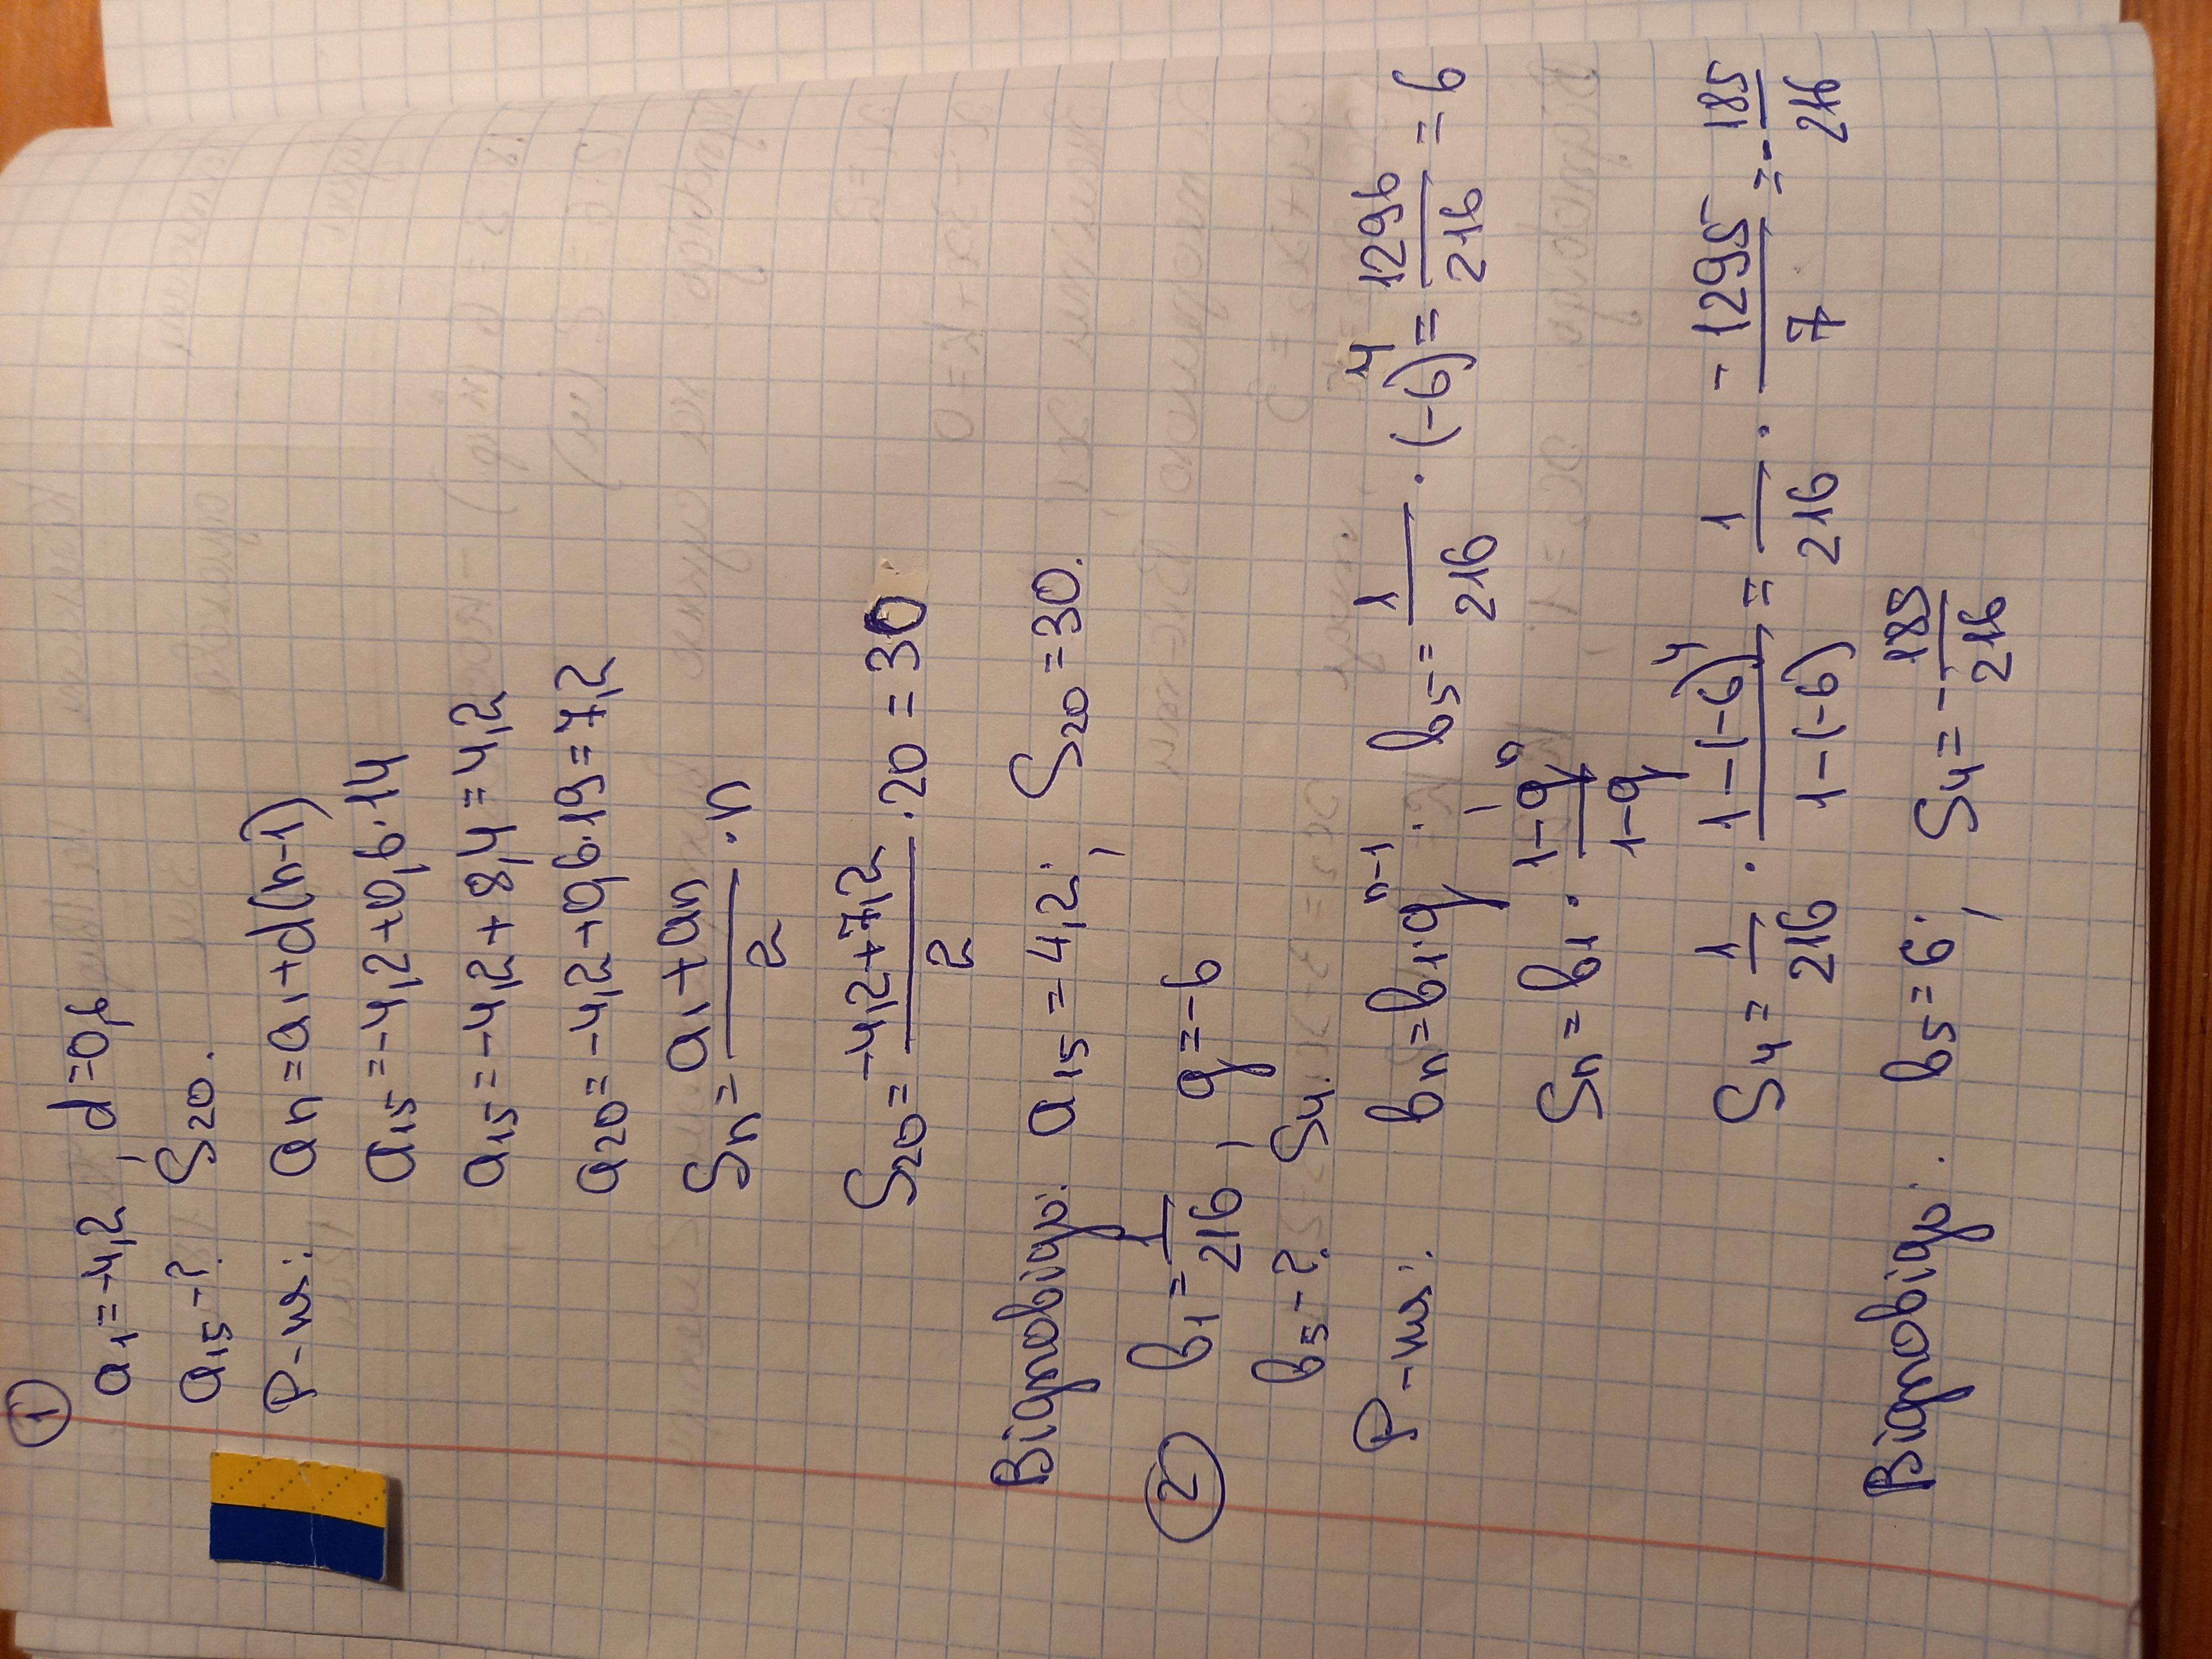 ①
a₁=-4,2, d=0,6
a₁₅-? S₂₀.
Р-ня: aₙ=a₁+d(n-1)
a₁₅=-4,2+0,6·14
a₁₅=-4,2+8,4=4,2
a₂₀=-4,2+0,6·19=7,2
Sₙ=(a₁+aₙ)/2·n
S₂₀=(-4,2+7,2)/2·20=30
Відповідь: a₁₅=4,2; S₂₀=30.
② b₁=1/216, q=-6
b₅-? S₄.
Р-ня: bₙ=b₁·qⁿ⁻¹; b₅=1/216·(-6)⁴=1296/216=6
Sₙ=b₁·(1-qⁿ)/(1-q)
S₄=1/216·(1-(-6)⁴)/(1-(-6))=1/216·-1295/7=-185/216
Відповідь: b₅=6; S₄=-185/216